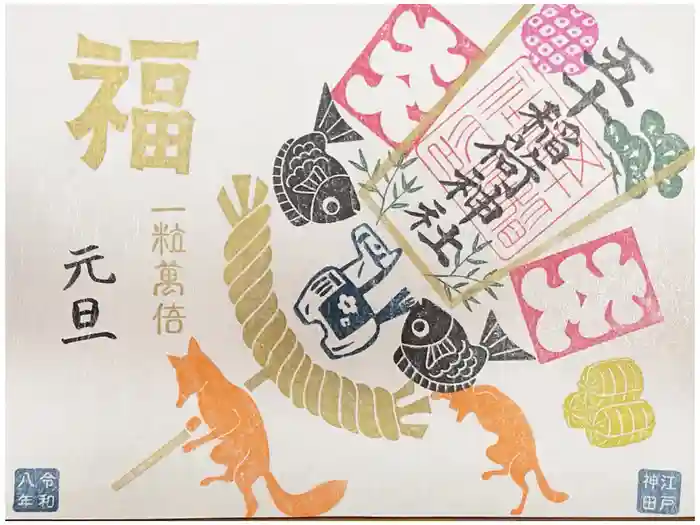 五十
稲荷神社
福
一粒萬倍
元旦
令和
八年
江戸
神田